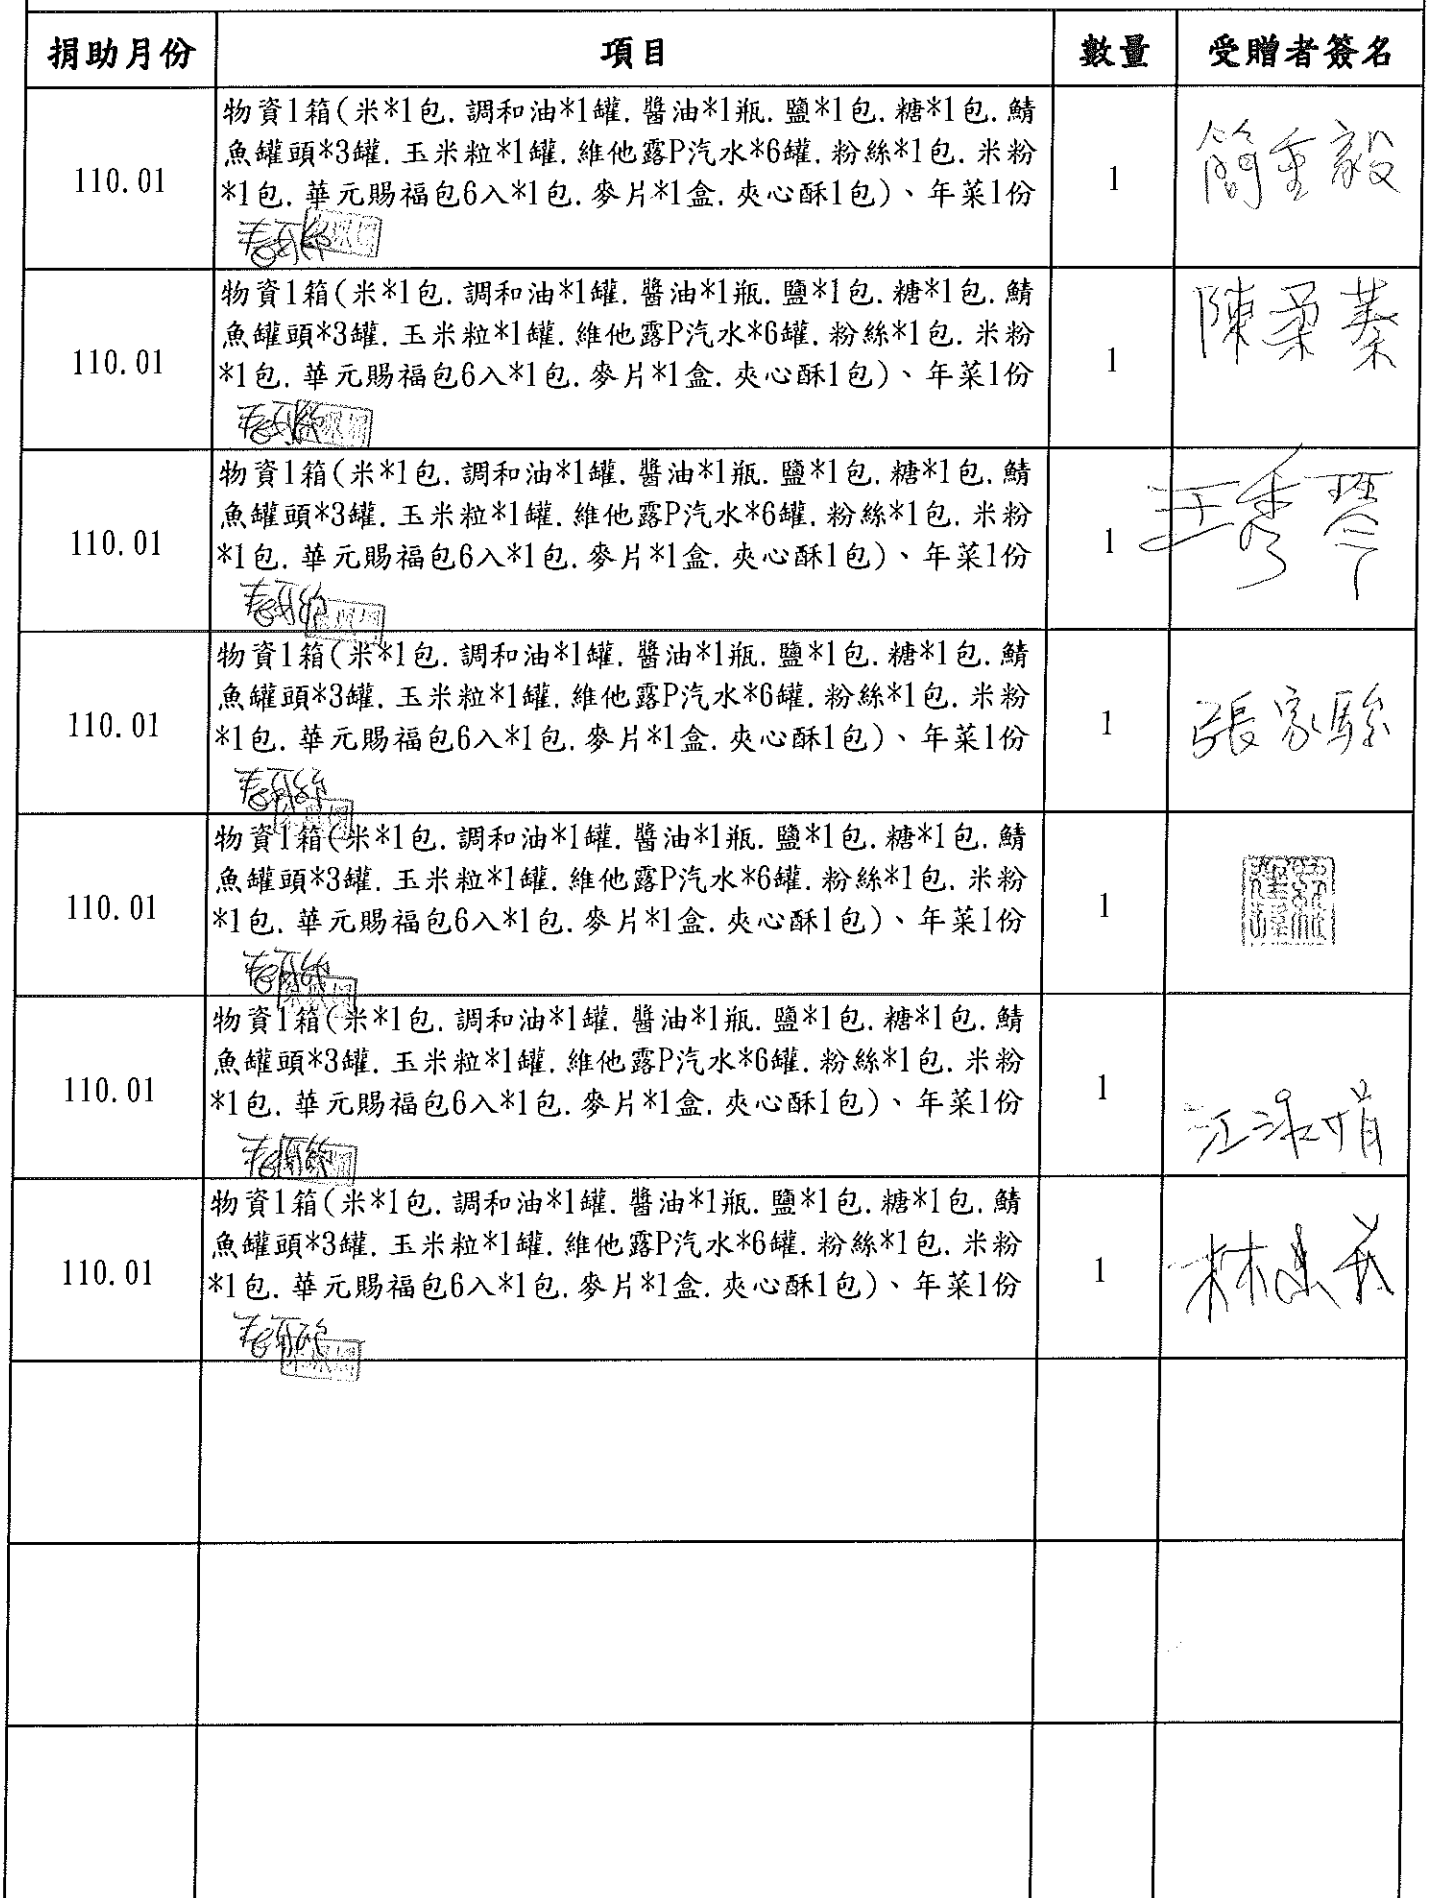 捐助月份 項目 數量 受贈者簽名
物資1箱(米*1包. 調和油*1罐. 醬油*1瓶. 鹽*1包. 糖*1包. 鯖
魚罐頭*3罐. 玉米粒*1罐. 維他露P汽水*6罐. 粉絲*1包. 米粉
110.01 *1包. 華元賜福包6入*1包. 麥片*1盒. 夾心酥1包)、年菜1份 1 簡重毅
物資1箱(米*1包. 調和油*1罐. 醬油*1瓶. 鹽*1包. 糖*1包. 鯖
魚罐頭*3罐. 玉米粒*1罐. 維他露P汽水*6罐. 粉絲*1包. 米粉
110.01 *1包. 華元賜福包6入*1包. 麥片*1盒. 夾心酥1包)、年菜1份 1 陳柔蓁
物資1箱(米*1包. 調和油*1罐. 醬油*1瓶. 鹽*1包. 糖*1包. 鯖
魚罐頭*3罐. 玉米粒*1罐. 維他露P汽水*6罐. 粉絲*1包. 米粉
110.01 *1包. 華元賜福包6入*1包. 麥片*1盒. 夾心酥1包)、年菜1份 1 王秀琴
物資1箱(米*1包. 調和油*1罐. 醬油*1瓶. 鹽*1包. 糖*1包. 鯖
魚罐頭*3罐. 玉米粒*1罐. 維他露P汽水*6罐. 粉絲*1包. 米粉
110.01 *1包. 華元賜福包6入*1包. 麥片*1盒. 夾心酥1包)、年菜1份 1 張家駿
物資1箱(米*1包. 調和油*1罐. 醬油*1瓶. 鹽*1包. 糖*1包. 鯖
魚罐頭*3罐. 玉米粒*1罐. 維他露P汽水*6罐. 粉絲*1包. 米粉
110.01 *1包. 華元賜福包6入*1包. 麥片*1盒. 夾心酥1包)、年菜1份 1
物資1箱(米*1包. 調和油*1罐. 醬油*1瓶. 鹽*1包. 糖*1包. 鯖
魚罐頭*3罐. 玉米粒*1罐. 維他露P汽水*6罐. 粉絲*1包. 米粉
110.01 *1包. 華元賜福包6入*1包. 麥片*1盒. 夾心酥1包)、年菜1份 1
物資1箱(米*1包. 調和油*1罐. 醬油*1瓶. 鹽*1包. 糖*1包. 鯖
魚罐頭*3罐. 玉米粒*1罐. 維他露P汽水*6罐. 粉絲*1包. 米粉
110.01 *1包. 華元賜福包6入*1包. 麥片*1盒. 夾心酥1包)、年菜1份 1